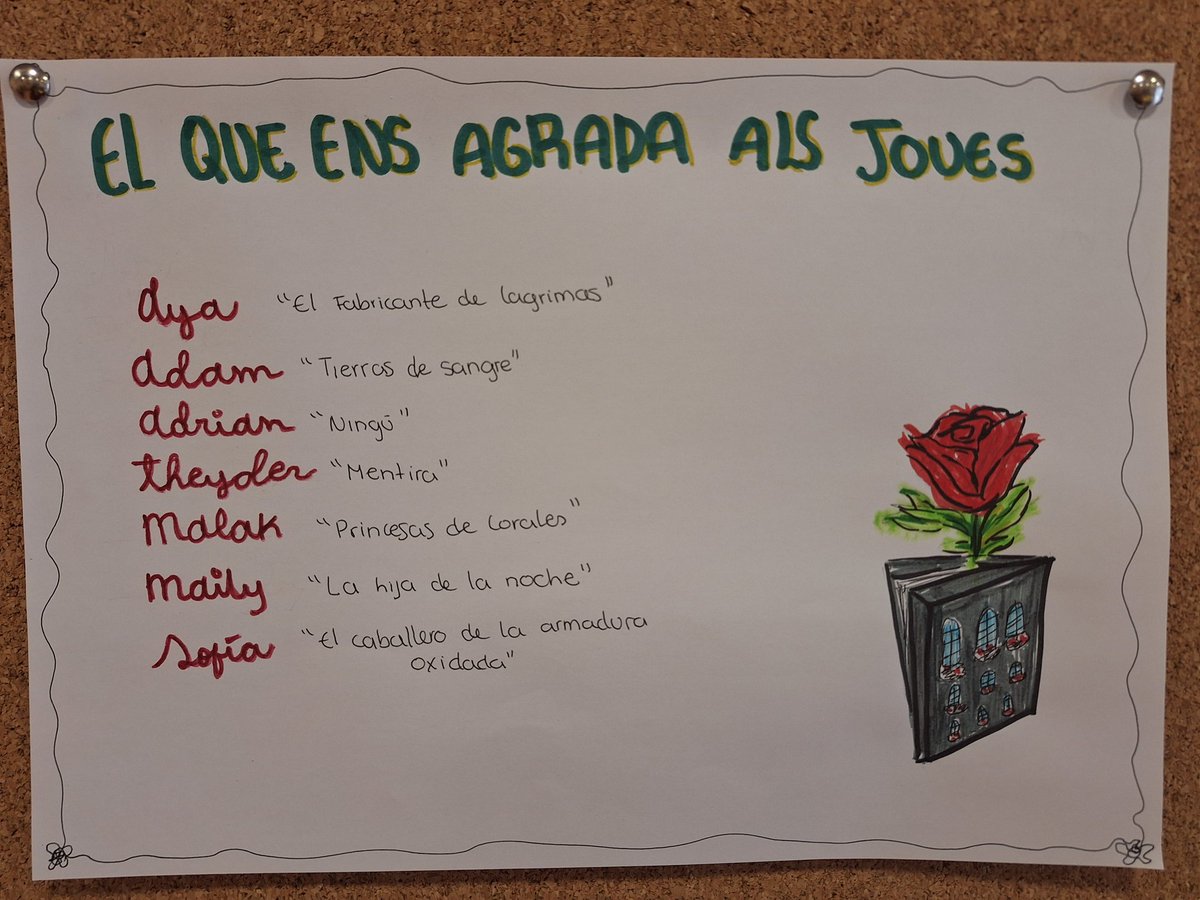 EL QUE ENS AGRADA ALS JOVES
dya "El Fabricante de lagrimas"
adam "Tierras de sangre"
adrian "Ningú"
theyder "Mentira"
Malak "Princesas de Corales"
maily "La hija de la noche"
Sofía "El caballero de la armadura
oxidada"